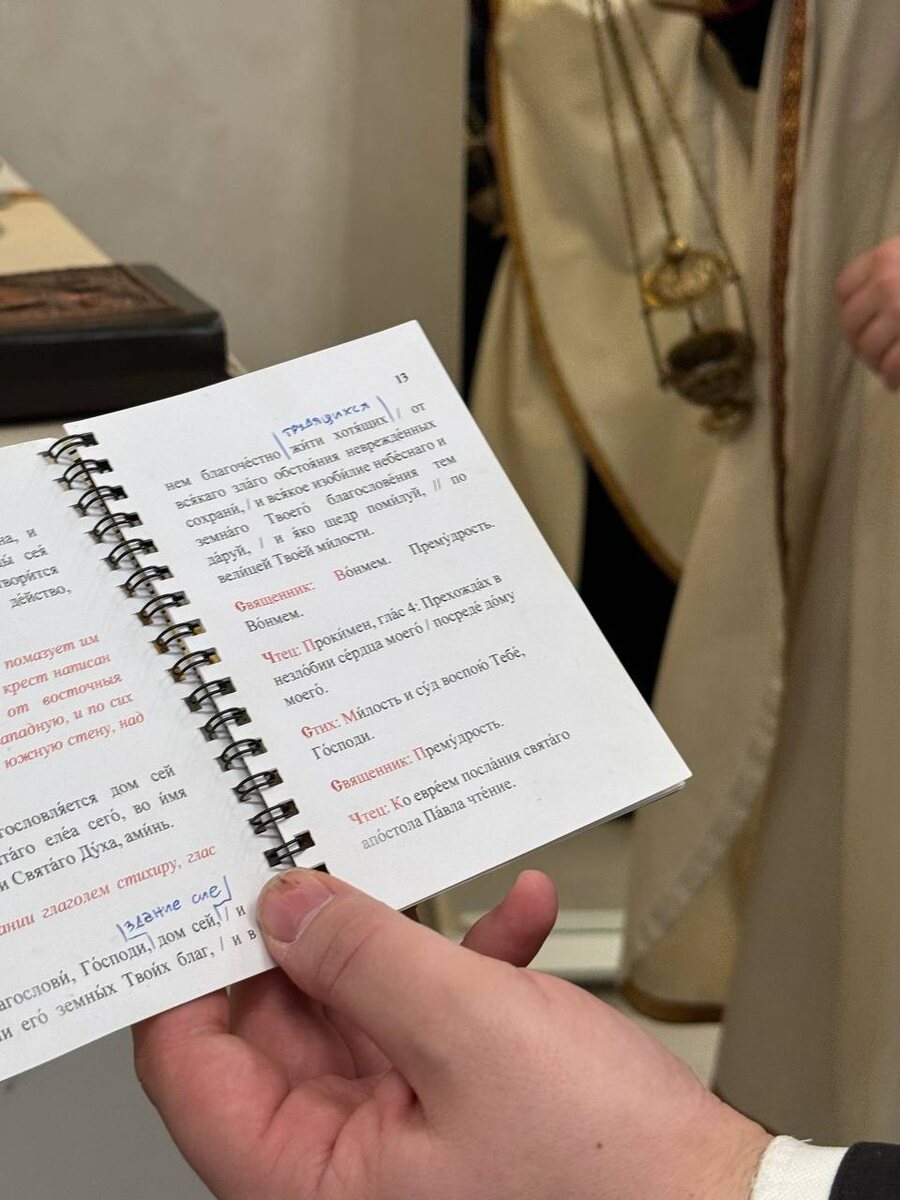 на, и
ы сея́
твори́тся
де́йство,
помазует им
крест написан
от восточныя
ападную, и по сих
южную стену, над
гословля́ется дом сей
та́го еле́а сего́, во и́мя
и Свята́го Ду́ха, ами́нь.
ании глаголем стихиру, глас
здание сие
лагослови́, Го́споди, дом сей, / и
ли его́ земны́х Твои́х благ, / и в
13
трудящихся
нем благоче́стно жи́ти хотя́щих / от
вся́каго зла́го обстоя́ния невреждéнных
сохрани́, / и вся́кое изоби́лие небе́снаго и
земна́го Твоего́ благослове́ния тем
да́руй, / и я́ко щедр поми́луй, // по
вели́цей Твое́й ми́лости.
Священник: Во́нмем. Прему́дрость.
Во́нмем.
Чтец: Проки́мен, гла́с 4: Прехожда́х в
незло́бии се́рдца моего́ / посреде́ до́му
моего́.
Стих: Ми́лость и су́д воспою́ Тебе́,
Го́споди.
Священник: Прему́дрость.
Чтец: Ко евре́ем посла́ния свята́го
апо́стола Па́вла чте́ние.